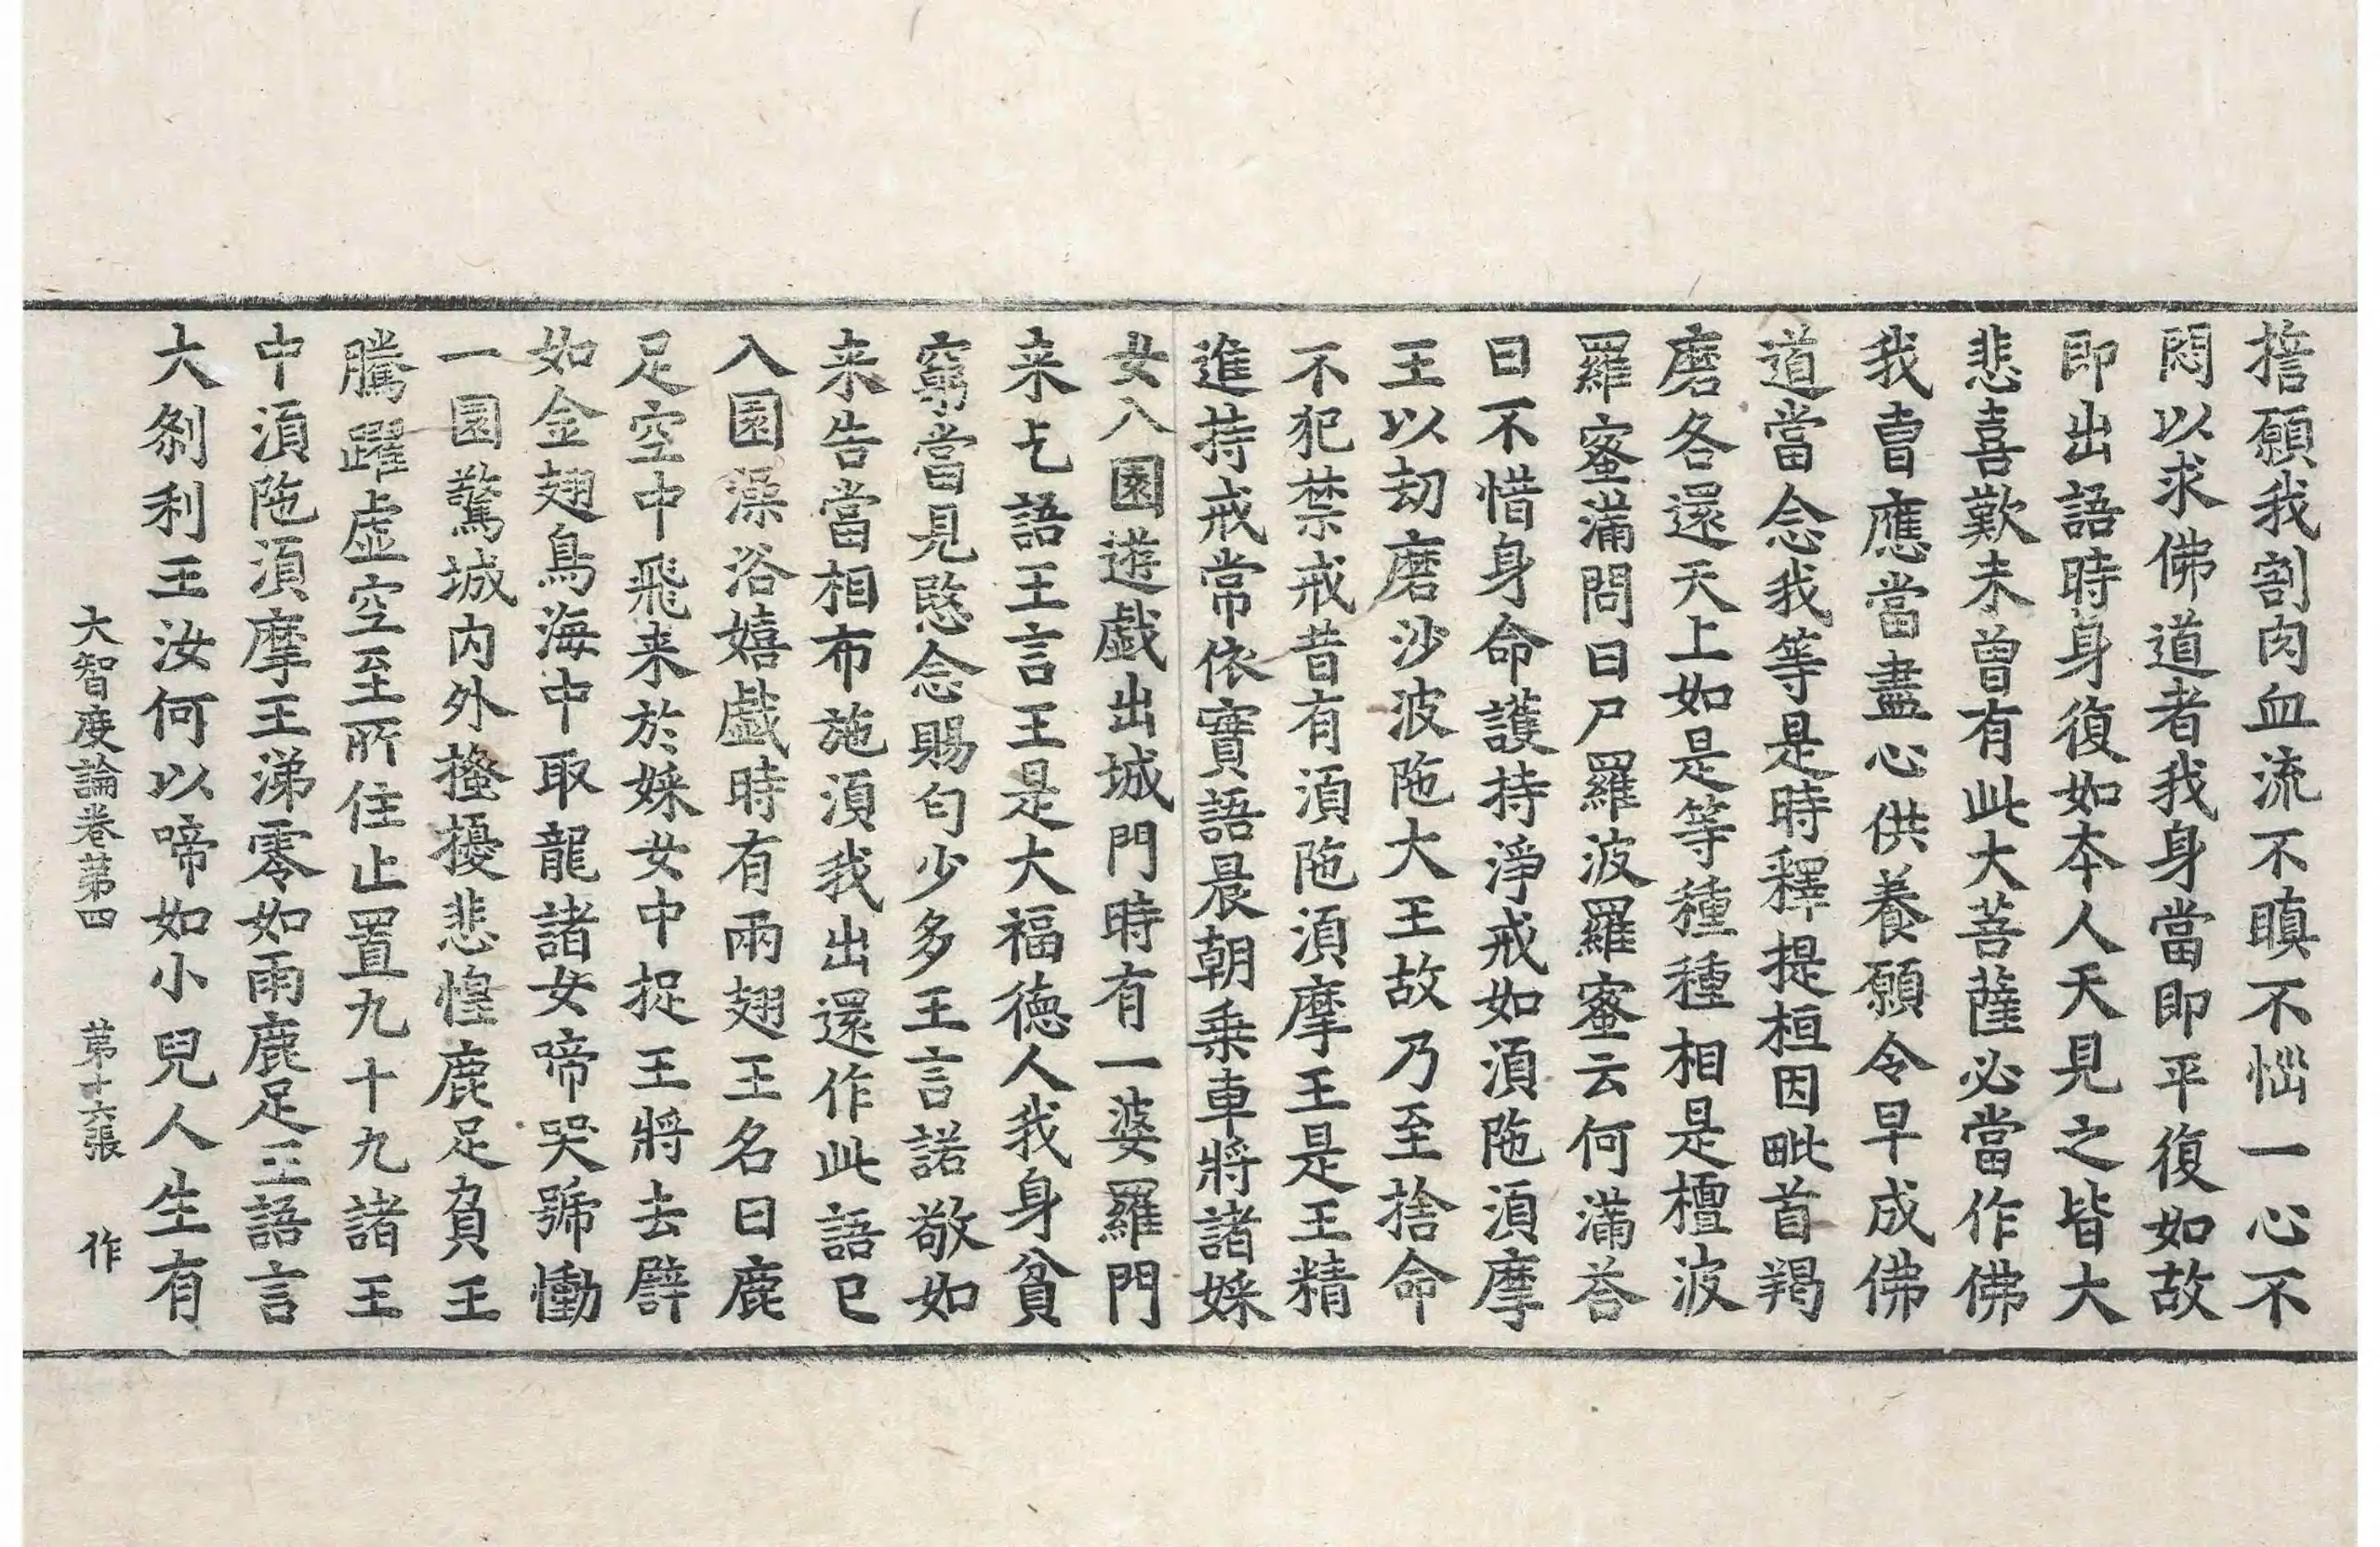 擔願我割肉血流不瞋不惱一心不
悶以求佛道者我身當即平復如故
即出語時身復如本人天見之皆大
悲喜歎未曾有此大菩薩必當作佛
我曹應當盡心供養願令早成佛
道當念我等是時釋提桓因毗首羯
磨各還天上如是等種種相是檀波
羅蜜滿問曰尸羅波羅蜜云何滿荅
曰不惜身命護持淨戒如湏陁湏摩
王以劫磨沙波陁大王故乃至捨命
不犯禁戒昔有湏陁湏摩王是王精
進持戒常依實語晨朝乗車將諸婇
女入園遊戱出城門時有一婆羅門
来乞語王言王是大福德人我身貧
窮當見愍念賜匃少多王言諾敬如
来告當相布施湏我出還作此語已
入園澡浴嬉戱時有兩翅王名曰鹿
足空中飛来於婇女中捉王將去譬
如金翅鳥海中取龍諸女啼哭號慟
一園驚城內外搔擾悲惶鹿足負王
騰躍虛空至所住止置九十九諸王
中湏陁湏摩王涕零如雨鹿足王語言
大剎利王汝何以啼如小兒人生有
大智度論卷第四 第十六張 作